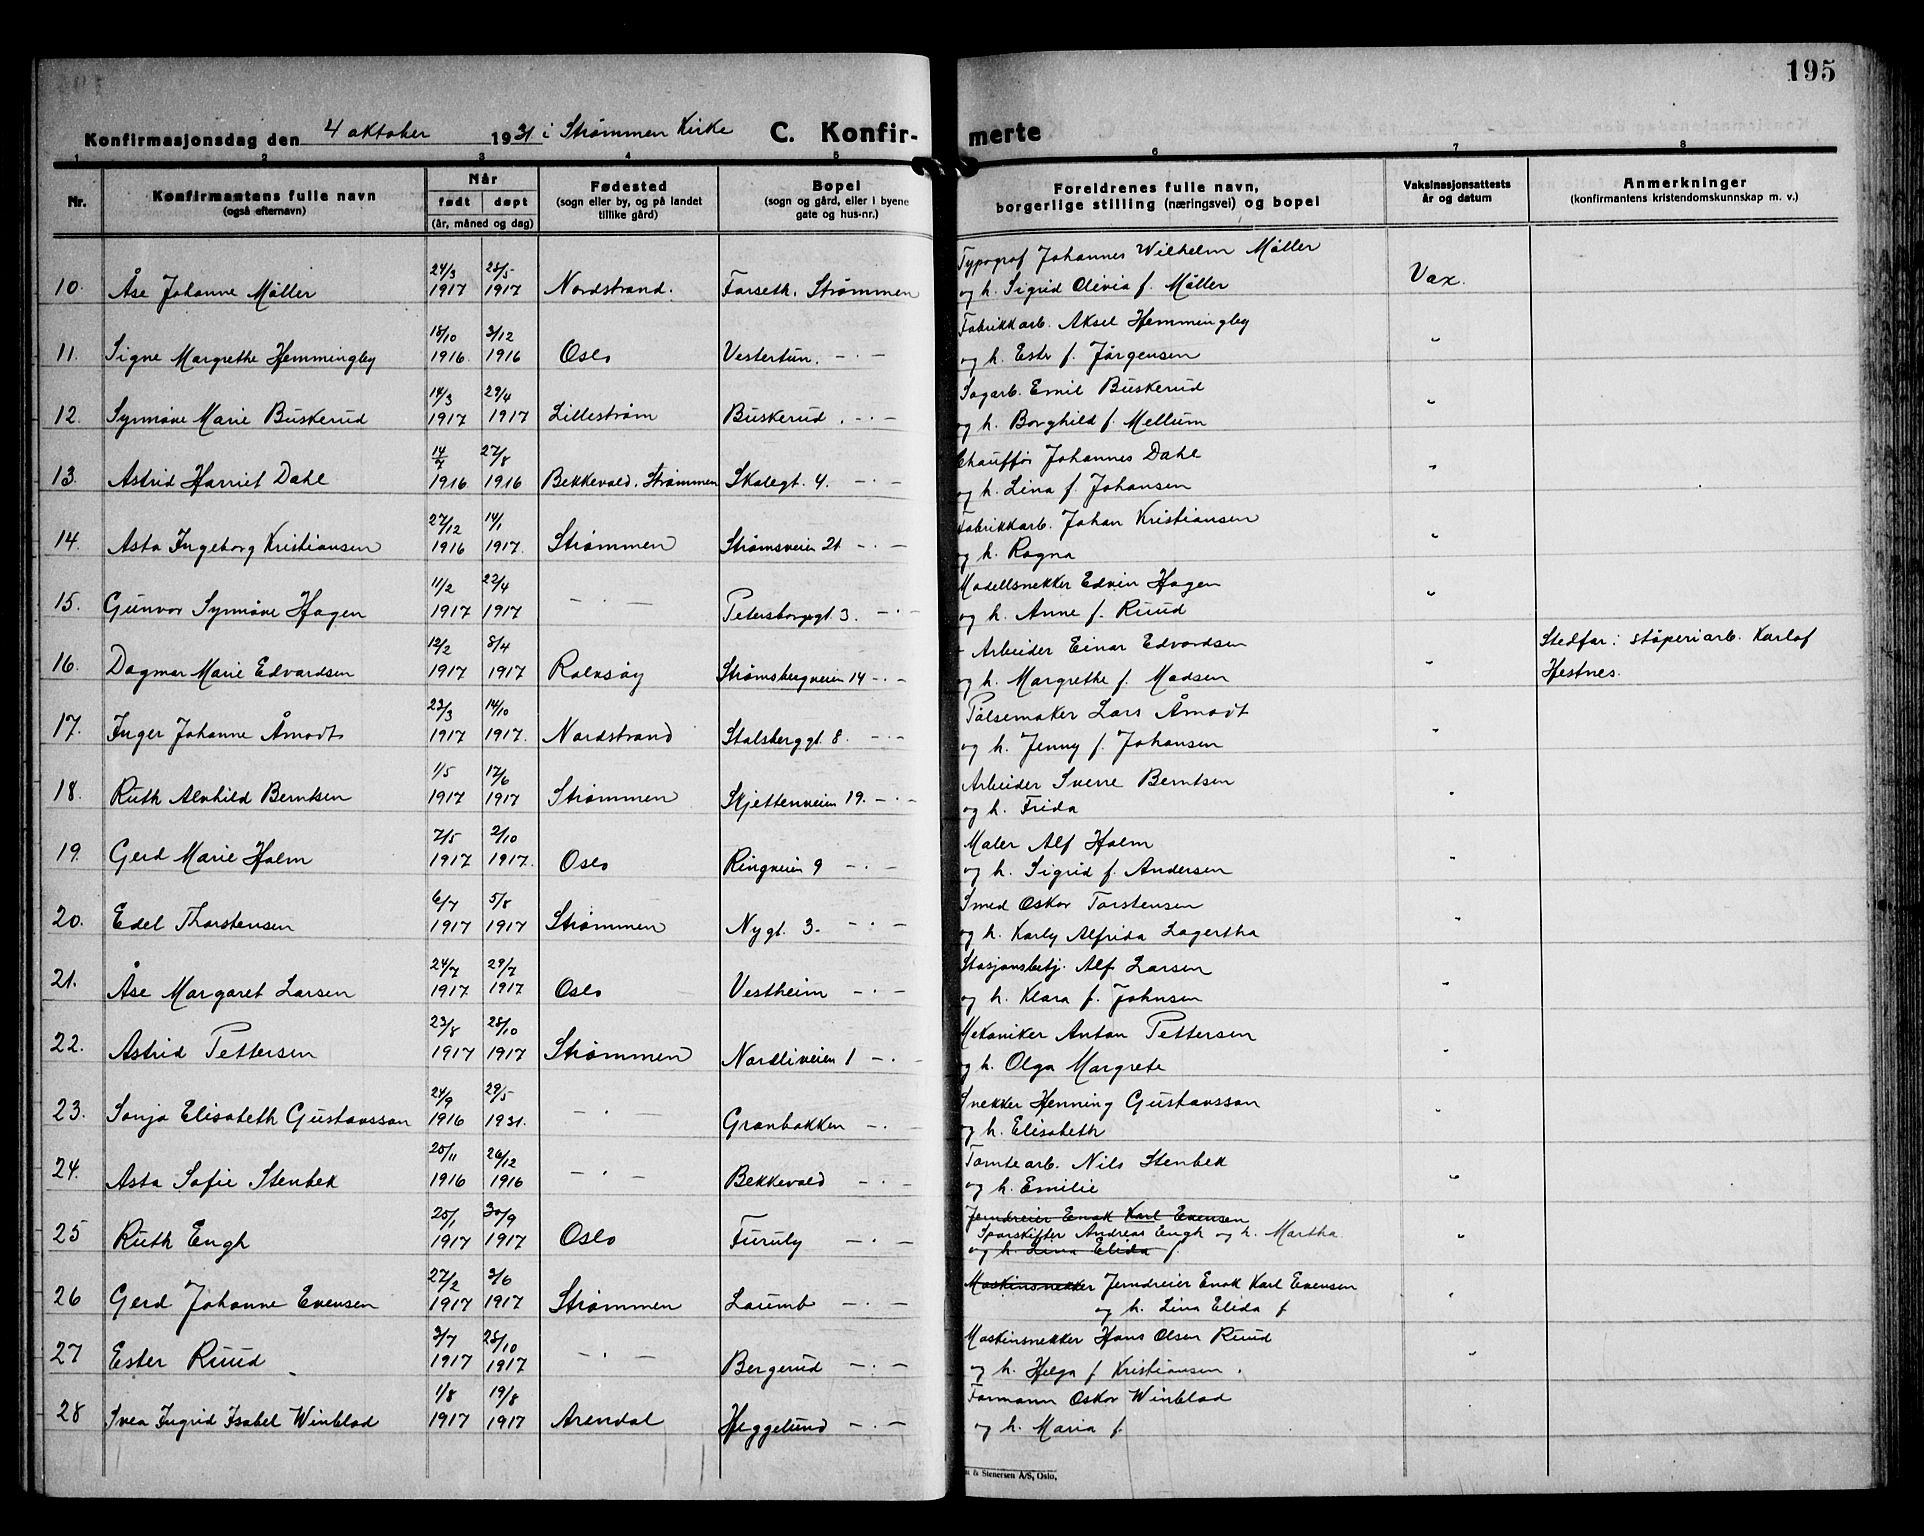 195
Konfirmasjonsdag den 4 oktober 1931 i Strømmen Kirke C. Konfir- merte
1 2 3 4 5 6 7 8
Nr. Konfirmantens fulle navn (også efternavn) Når født døpt (år, måned og dag) Fødested (sogn eller by, og på landet tillike gård) Bopel (sogn og gård, eller i byene gate og hus-nr.) Foreldrenes fulle navn, borgerlige stilling (næringsvei) og bopel Vaksinasjonsattests år og datum Anmerkninger (konfirmantens kristendomskunnskap m. v.)
24/3 28/5 Typograf Johannes Wilhelm Møller
10. Åse Johanne Møller 1917 1917 Nordstrand. Farseth, Strømmen og h. Sigrid Olivia f. Møller Vax.
18/10 3/12 Fabrikkarb. Aksel Hemmingby
11. Signe Margrethe Hemmingby 1916. 1916 Oslo Vestertun. -·- og h. Ester f. Jørgensen "
14/3 29/4 Sagarb. Emil Buskerud
12. Synnøve Marie Buskerud 1917 1917 Lillestrøm Buskerud. -·- og h. Borghild f. Mellum "
14/7 27/8 Chauffør Johannes Dahl
13. Astrid Harriet Dahl 1916 1916 Bekkevold. Strømmen Skolegt. 4. -·- og h. Lina f. Johansen "
27/12 14/1 Fabrikkarb. Johan Kristiansen
14. Asta Ingeborg Kristiansen 1916 1917. Strømmen Strømsveien 21 -·- og h. Ragna "
11/2 22/4 Modellsnekker Edvin Hagen
15. Gunvor Synnøve Hagen 1917 1917 -·- Petersborggt. 3. -·- og h. Anne f. Ruud "
12/2 8/4 + Arbeider Einar Edvardsen Stedfar: støperiarb. Karlof
16. Dagmar Marie Edvardsen 1917 1917 Rolvsøy Strømsbergveien 14 -·- og h. Margrethe f. Madsen " Hestnes.
23/3 14/10 Pølsemaker Lars Åmodt
17. Inger Johanne Åmodt 1917 1917. Nordstrand Stalsberggt. 8. -·- og h. Jenny f. Johansen "
1/5 17/6 Arbeider Sverre Berntsen
18. Ruth Alvhild Berntsen 1917 1917 Strømmen Skjettenveien 19. -·- og h. Frida "
7/5 2/10 Maler Alf Holm
19. Gerd Marie Holm 1917 1917. Oslo Ringveien 9 -·- og h. Sigrid f. Andersen "
6/7 5/8 Smed Oskar Torstensen
20. Edel Thorstensen 1917 1917 Strømmen Nygt. 3. -·- og h. Karly Alfrida Lagertha "
24/7 29/7 Stasjonsbetj. Alf Larsen
21. Åse Margaret Larsen 1917 1917 Oslo Vestheim -·- og h. Klara f. Johnsen "
23/8 28/10 Mekaniker Anton Pettersen
22. Astrid Pettersen 1917 1917 Strømmen Nordliveien 1 -·- og h. Olga Margrete "
24/9 29/5 Snekker Henning Gustavsson
23. Sonja Elisabeth Gustavsson 1916 1931. -·- Granbakken -·- og h. Elisabeth "
25/11 26/12 Tomtearb. Nils Stenbek
24. Asta Sofie Stenbek 1916 1916 -·- Bekkevold -·- og h. Emilie "
25/1 30/9 Jerndreier Enok Karl Evensen
25 Ruth Engh 1917 1917 Oslo Furuly -·- Sporskifter Andreas Engh og h. Martha "
og h. Lina Elida f.
27/2 3/6 Maskinsnekker Jerndreier Enok Karl Evensen
26 Gerd Johanne Evensen 1917 1917 Strømmen Laumb -·- og h. Lina Elida f "
3/7 28/10 Maskinsnekker Hans Olsen Ruud
27 Ester Ruud 1917 1917 -·- Bergerud -·- og h. Helga f Kristiansen. "
1/8 19/8 Formann Oskar Winblad
28 Svea Ingrid Isabel Winblad 1917 1917 Arendal Heggelund -·- og h. Maria f.
& Stenersen A/S, Oslo,